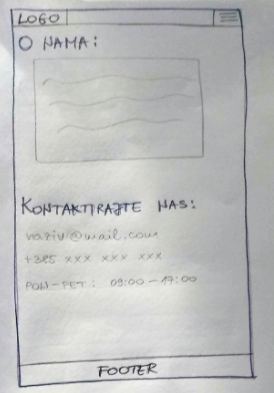 LOGO
O NAMA:
KONTAKTIRAJTE NAS:
naziv@mail.com
+385 xxx xxx xxx
PON-PET: 09:00-17:00
FOOTER